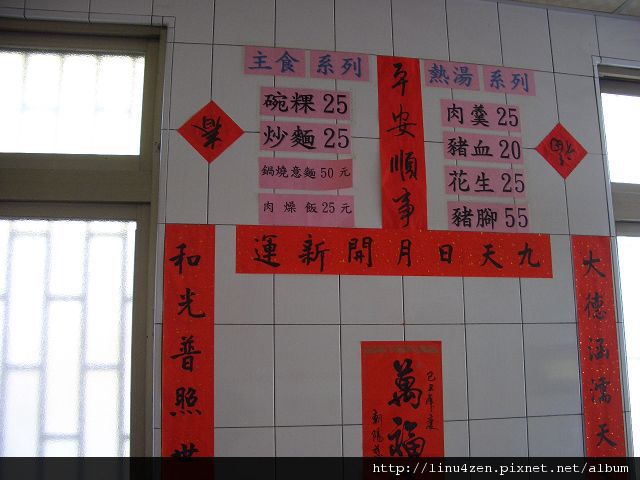 主食 系列
碗粿 25
炒麵 25
鍋燒意麵 50 元
肉燥飯 25 元
平安順事
熱湯 系列
肉羹 25
豬血 20
花生 25
豬腳 55
春
福
九天日月開新運
和光普照世
大德涵濡天
萬福
http://linu4zen.pixnet.net/album